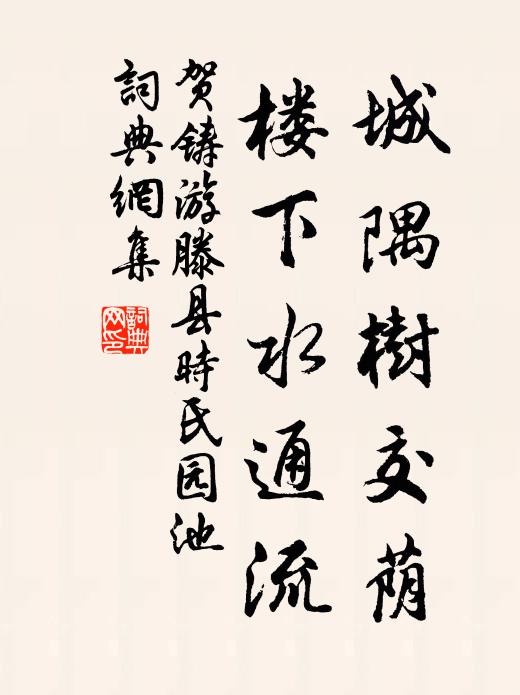 城隅樹交荫
楼下水通流
贺铸游滕县時氏园池
詞典網集
詞典网印